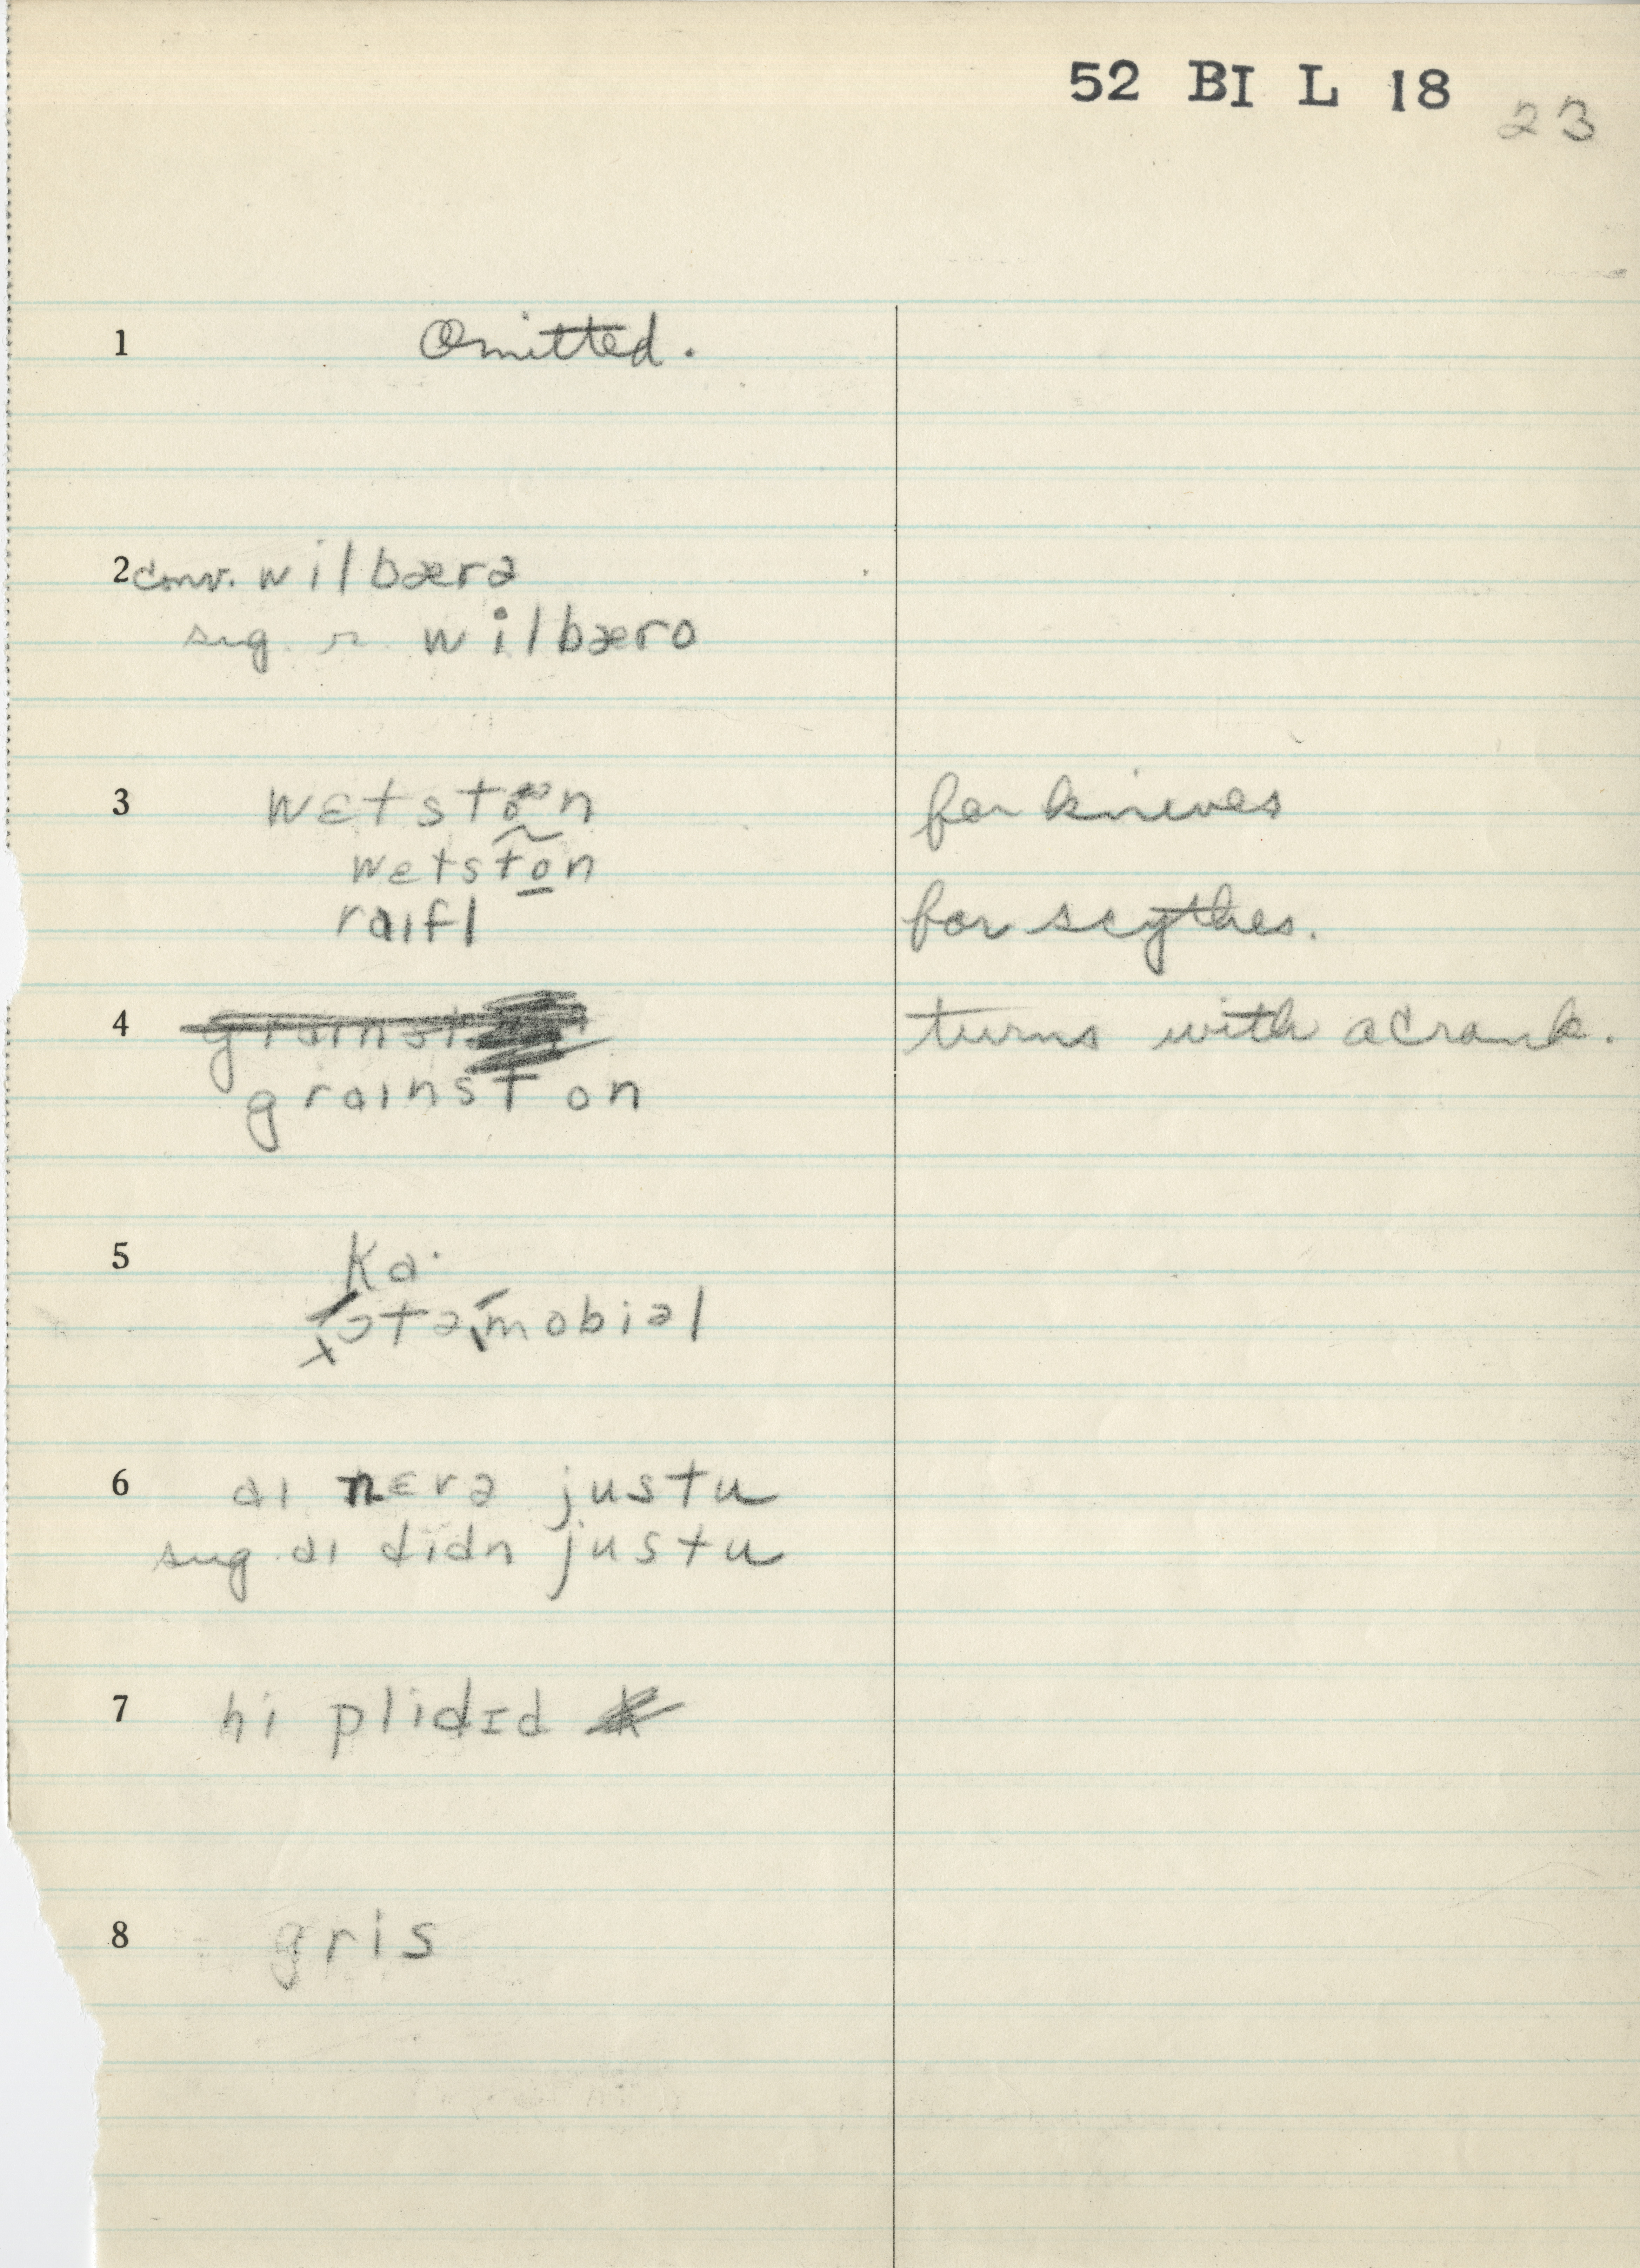 52 BI L 18
23
1 Omitted.
2 conv. wilbærə
sug r. wilbæro
3 wɛtston for knieves
wetston
raɪfl for scythes.
4 turns with a crank.
graɪnston
5 ka·
ɔtəmobiəl
6 aɪ nɛvə justu
sug aɪ didn justu
7 hi plidɪd
8 gris